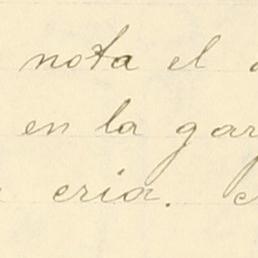 nota el
en la gar
cria.